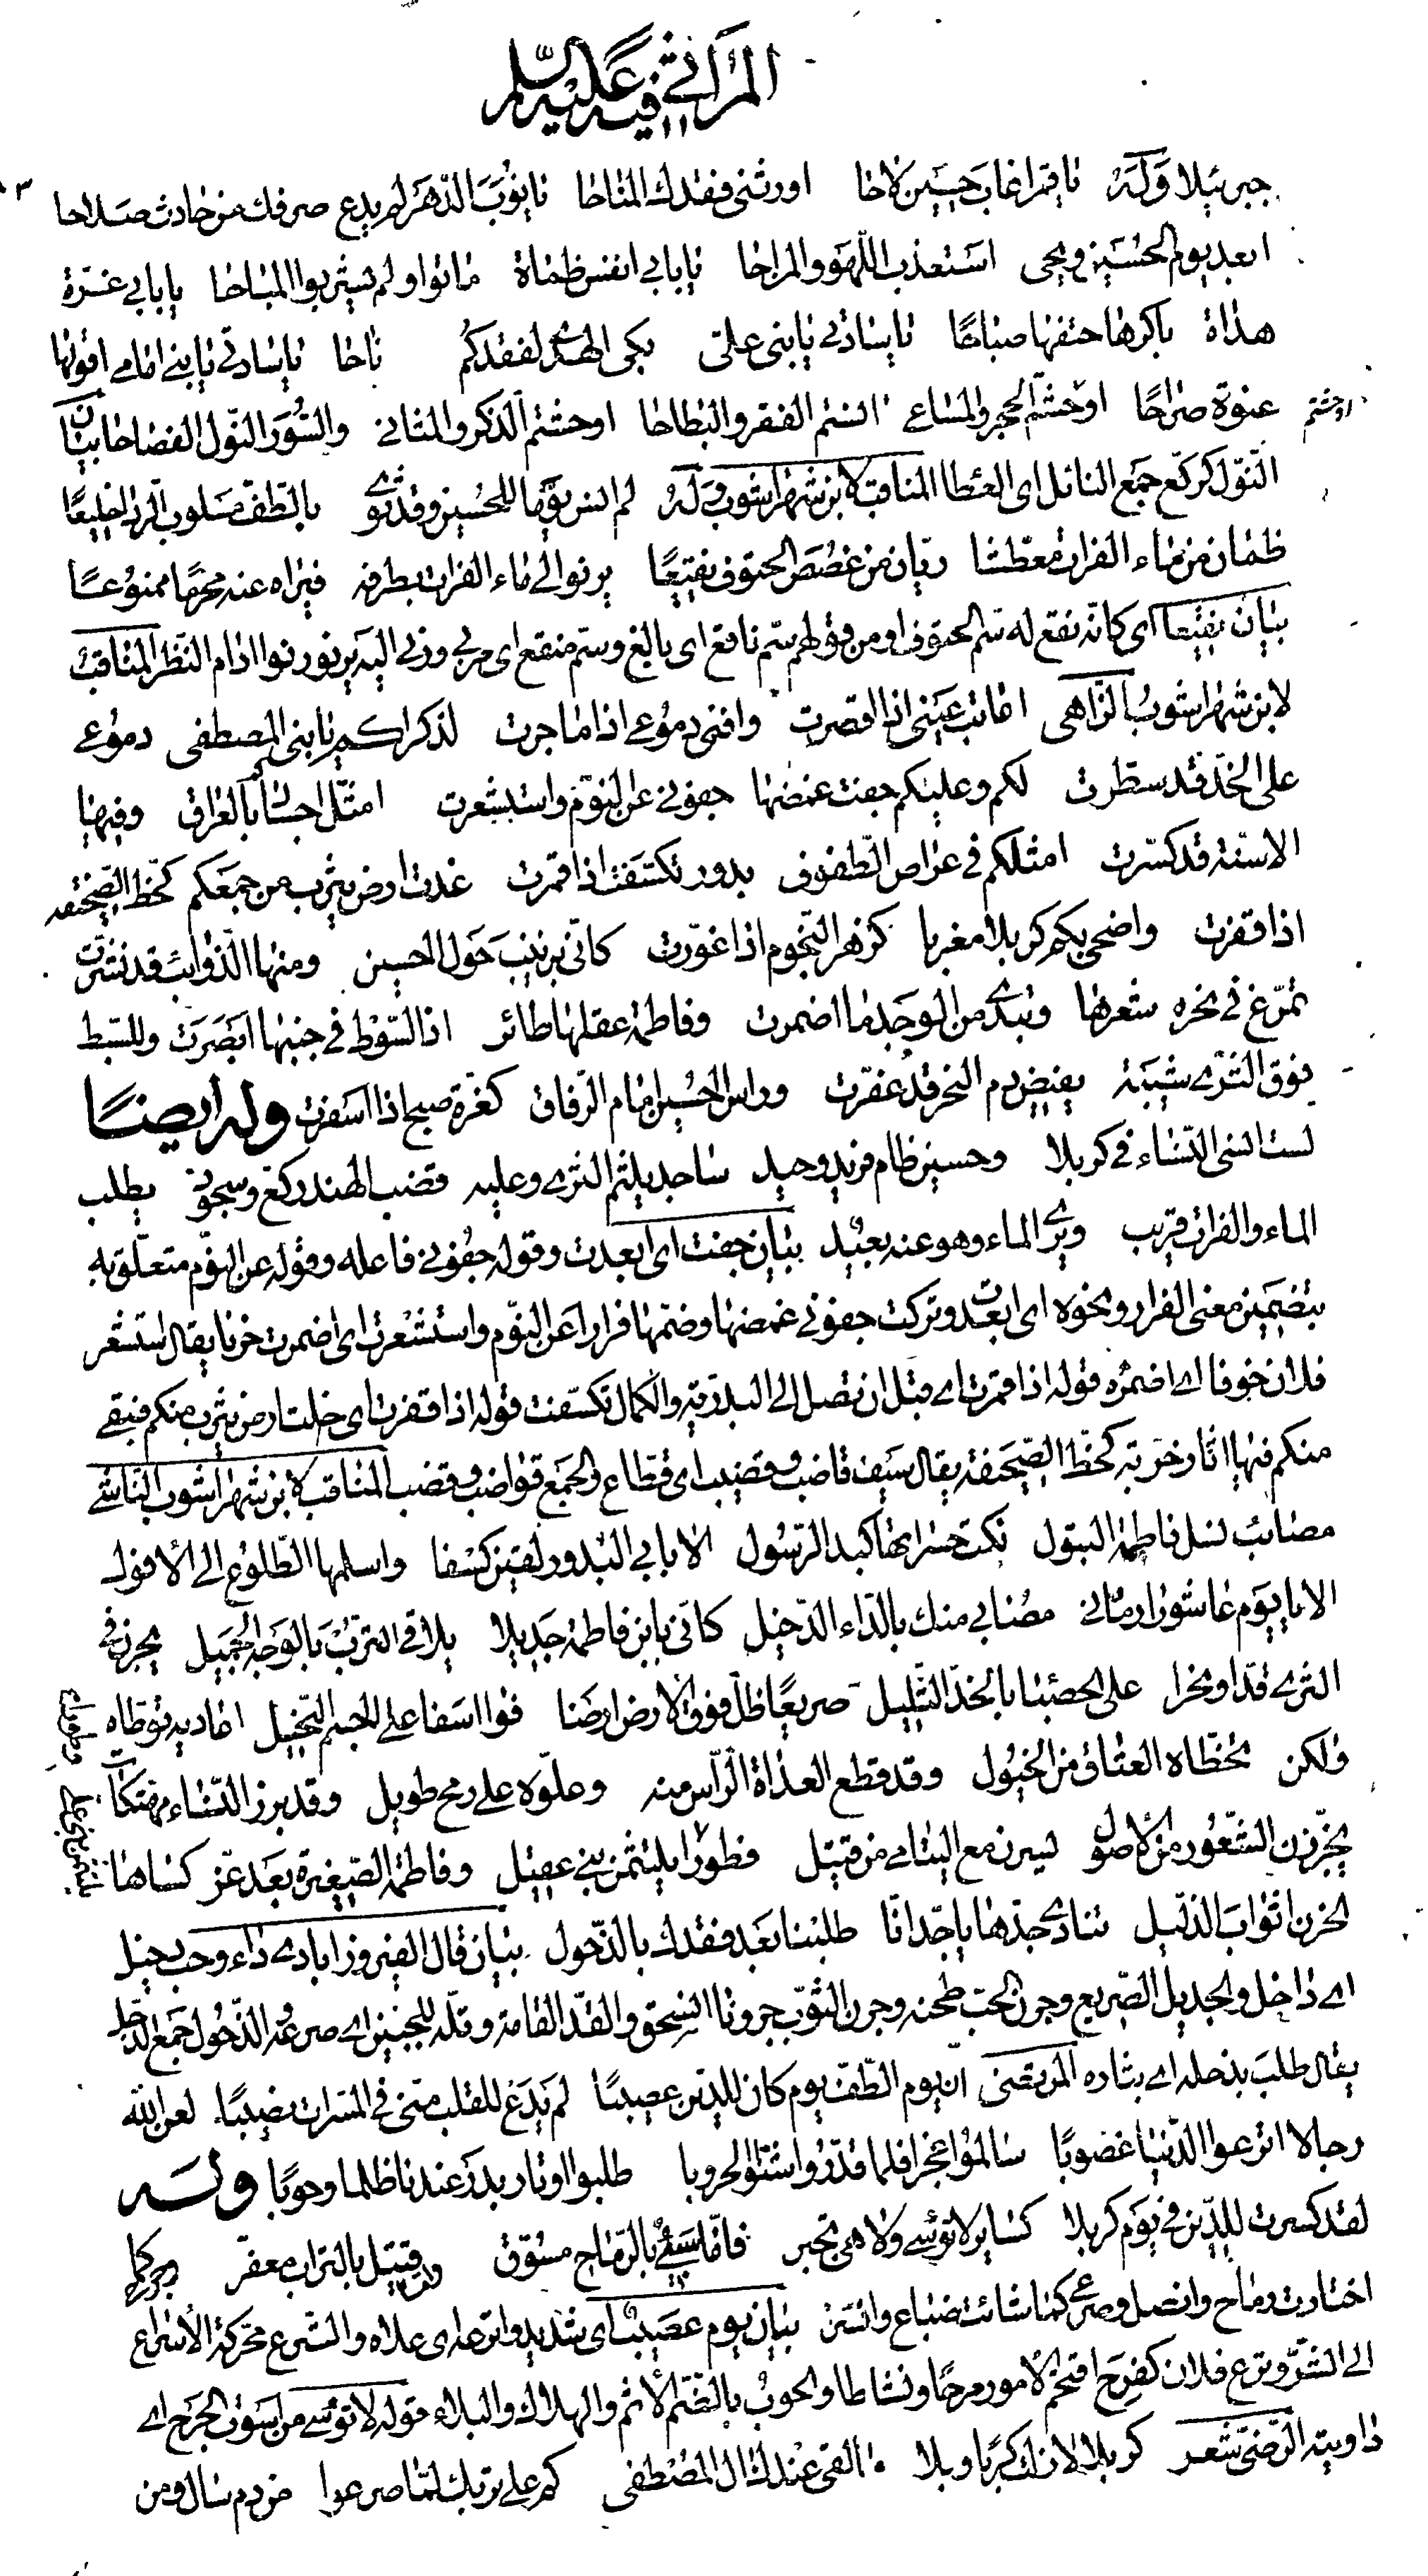 المراثي فيه عليه السلام
جبرئيلا وله يا قمرا غاب حسين لاحا اورثني فقدك المناحا يا نوب الدهر لم يدع صرفك من حادث صلاحا
ابعد يوم الحسين ويحي استعذب اللهو والمراحا يا بابي انفس ظماة ماتوا ولم يشربوا المباحا يا بابي غرة
هداة باكرها حتفها صباحا يا سادتي يا بني علي بكى الهدى لفقدكم ناحا يا سادتي يا بني امامي اقولها
عنوة صراحا اوحشتم الحجر والمساعي انستم القفر والبطاحا اوحشتم الذكر والمثاني والسور النول الفصاحا بيان
اوحشتم
النول كركع جمع النائل اى العطا المناقب لابن شهراشوب وله لم انس يوما للحسين وقد ثوى بالطف مسلوب الرداء خليعا
ظمان من ماء الفرات معطشا ريان من غصص الحتوف نقيعا يرنو الى ماء الفرات بطرفه فيراه عنه محرما ممنوعا
بيان نقيعا اى كانه نقع له سم الحتوف او من قولهم سم ناقع اى بالغ وسم منقع اى مربى ورنى اليه يرنو رنوا ادام النظر المناقب
لابن شهراشوب الزاهى اعاتب عيني اذا اقصرت وافني دموعي اذا ما جرت لذكراكم يا بني المصطفى دموعي
على الخد قد سطرت لكم وعليكم جفت غمضها جفوني عن النوم واستشعرت امثل اجسادكم بالعراق وفيها
الاسنة قد كسرت امثلكم في عراص الطفوف بدور تكسفت اذا قمرت غدت ارض يثرب من جمعكم كخط الصحيفة
اذا قفرت واضحى بكم كربلا مغربا كزهر النجوم اذا غورت كاني بزينب حول الحسين ومنها الذوائب قد نشرت
تمرغ في نحره شعرها وتبدي من الوجد ما اضمرت وفاطمة عقلها طائر اذ السوط في جنبها ابصرت وللسبط
فوق الثرى شيبة بفيض دم النحر قد عفرت وراس الحسين امام الرفاق كغرة صبح اذا اسفرت وله ايضا
لست انسى النساء في كربلا وحسين ظام فريد وحيد ساجد يلثم الثرى وعليه قضب الهند ركع وسجود يطلب
الماء والفرات قريب ويرى الماء وهو عنه بعيد بيان جفت اى ابعدت وقوله جفوني فاعله وقوله عن النوم متعلق به
بتضمين معنى الفرار ونحوه اى ابعدت وتركت جفوني غمضها وضمها فرارا عن النوم واستشعرت اى اضمرت حزنا يقال استشعر
فلان خوفا اى اضمره قوله اذا قمرت اى قبل ان تصل الى البدرية والكمال تكسفت قوله اذا قفرت اى خلت ارض يثرب منكم فبقى
منكم فيها اثار خربة كخط الصحيفة يقال سيف قاضب وقضيب اى قطاع والجمع قواضب وقضب المناقب لابن شهراشوب الناشي
مصائب نسل فاطمة البتول نكت حسراتها كبد الرسول الا بابي البدور لقين كسفا واسلمها الطلوع الى الافول
الا يا يوم عاشورا رماني مصابي منك بالداء الدخيل كاني بابن فاطمة جديلا يلاقي الترب بالوجه الجميل يجرن في
الثرى قدا ونحرا على الحصباء بالخد التليل صريعا ظل فوق الارض ارضا فوا اسفا على الجسم النحيل اعاديه توطاه
ولكن تخطاه العتاق من الخيول وقد قطع العداة الراس منه وعلوه على رمح طويل وقد برز النساء مهتكات
يجززن الشعور من الاصول يسرن مع اليتامى من قتيل فطورا يلتثمن بني عقيل وفاطمة الصغيرة بعد عز كساها
الحزن اثواب الذليل تنادي جدها يا جد انا طلبنا بعد فقدك بالذحول بيان قال الفيروزابادى داء وحب دخيل
اى داخل والجديل الصريع وجرن الحب طحنه وجرن الثوب جرونا انسحق والقد القامة وتله للجبين اى صرعه الذحول جمع الذحل
يقال طلب بذحله اى بثاره المرتضى ان يوم الطف يوم كان للدين عصيبا لم يدع للقلب مني في المسرات نصيبا لعن الله
رجالا اترعوا الدنيا غصوبا سالموا عجزا فلما قدروا شنوا الحروبا طلبوا اوتار بدر عندنا ظلما وحوبا وله
لقد كسرت للدين في يوم كربلا كسائر لا توسى ولا هى تجبر فاما سبي بالرماح مسوق واما قتيل بالتراب معفر وجرحى كما
اختارت رماح وانصل وصرعى كما شاءت ضباع وانسر بيان يوم عصيب اى شديد واترعه اى ملاه والترع محركة الاسراع
الى الشر وترع فلان كفرح اقتحم الامور مرحا ونشاطا والحوب بالضم الاثم والهلاك والبلاء قوله لا توسى من اسوت الجرح اى
داويته الرضى شعر كربلا لا زلت كربا وبلا ما لقي عندك ال المصطفى كم على تربك لما صرعوا من دم سال ومن